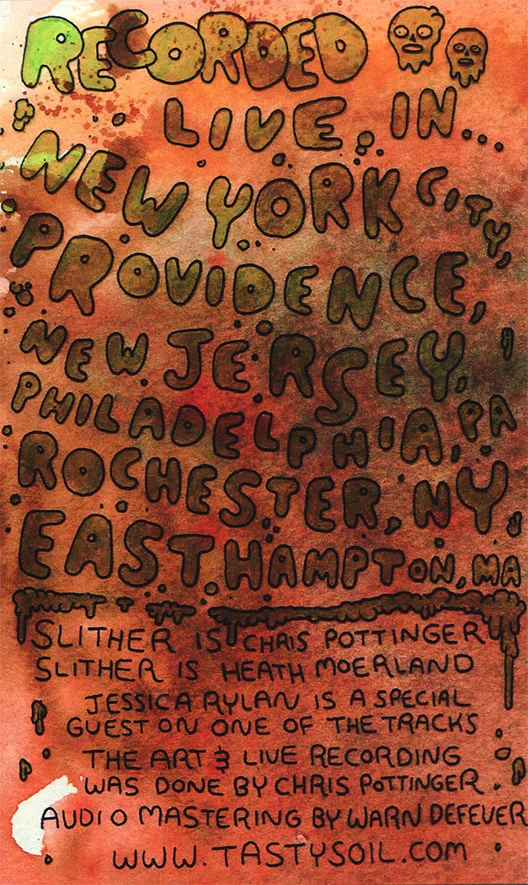 RECORDED
LIVE IN...
NEW YORK CITY,
PROVIDENCE,
NEW JERSEY,
PHILADELPHIA, PA
ROCHESTER, NY,
EAST HAMPTON, MA
SLITHER IS CHRIS POTTINGER
SLITHER IS HEATH MOERLAND
JESSICA RYLAN IS A SPECIAL
GUEST ON ONE OF THE TRACKS
THE ART & LIVE RECORDING
WAS DONE BY CHRIS POTTINGER.
AUDIO MASTERING BY WARN DEFEVER
WWW.TASTYSOIL.COM